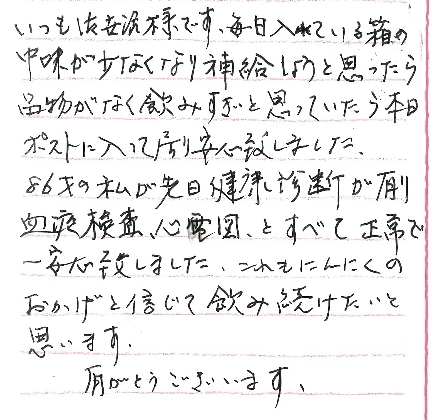 いつもお世話様です、毎日入れている箱の
中味が少なくなり補給しようと思ったら
品物がなく飲みすぎと思っていたら本日
ポストに入って居り安心致しました、
86才の私が先日健康診断が有り
血液検査、心電図、とすべて正常で
一安心致しました、これもにんにくの
おかげと信じて飲み続けたいと
思います.
有がとうございます、